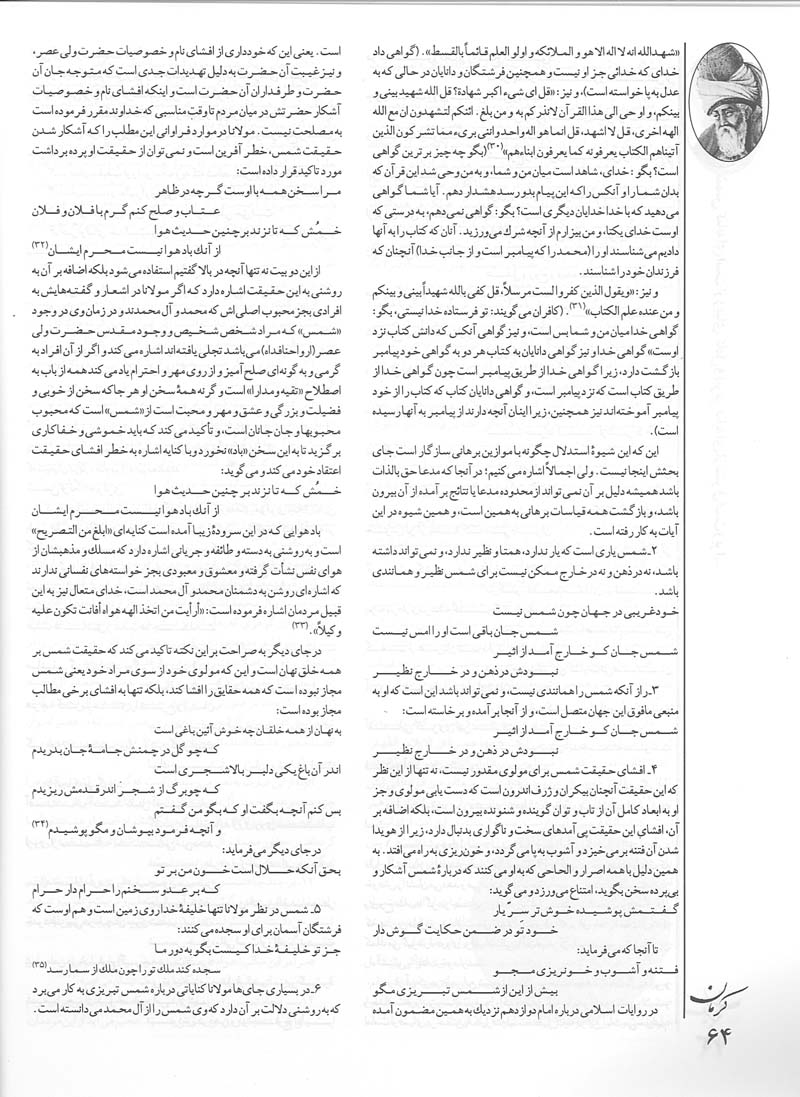 «شهدالله انه لا اله الا هو و الملائکه و اولو العلم قائماً بالقسط». (گواهی داد
خدای که خدائی جز او نیست و همچنین فرشتگان و دانایان در حالی که به
عدل به پا خواسته است)، و نیز: «قل ای شیء اکبر شهادة؟ قل الله شهید بینی و
بینکم، و اوحی الی هذا القرآن لانذرکم به و من بلغ. ائنکم لتشهدون ان مع الله
الهه اخری، قل لا اشهد، قل انما هو اله واحد و اننی بریء مما تشرکون الذین
آتیناهم الکتاب یعرفونه کما یعرفون ابناءهم»(۳۰) (بگو چه چیز برترین گواهی
است؟ بگو: خدای، شاهد است میان من و شما، و به من وحی شد این قرآن که
بدان شما را و آنکس را که این پیام بدو رسد هشدار دهم. آیا شما گواهی
می‌دهید که با خدا خدایان دیگری است؟ بگو: گواهی نمی‌دهم، به درستی که
اوست خدای یکتا، و من بیزارم از آنچه شرک می‌ورزید. آنان که کتاب را به آنها
دادیم می‌شناسند او را (محمد را که پیامبر است و از جانب خدا) آنچنان که
فرزندان خود را شناسند.
و نیز: «ویقول الذین کفروا لست مرسلاً، قل کفی بالله شهیداً بینی و بینکم
و من عنده علم الکتاب»(۳۱). (کافران می‌گویند: تو فرستاده خدا نیستی، بگو:
گواهی خدا میان من و شما بس است، و نیز گواهی آنکس که دانش کتاب نزد
اوست» گواهی خدا و نیز گواهی دانایان به کتاب هر دو به گواهی خود پیامبر
بازگشت دارد، زیرا گواهی خدا از طریق پیامبر است چون گواهی خدا از
طریق کتاب است که نزد پیامبر است، و گواهی دانایان کتاب که کتاب را از خود
پیامبر آموخته‌اند نیز همچنین، زیرا اینان آنچه دارند از پیامبر به آنها رسیده
است).
این که این شیوهٔ استدلال چگونه با موازین برهانی سازگار است جای
بحثش اینجا نیست. ولی اجمالاً اشاره می‌کنیم؛ در آنجا که مدعا حق بالذات
باشد همیشه دلیل بر آن نمی‌تواند از محدوده مدعا یا نتائج برآمده از آن بیرون
باشد، و بازگشت همه قیاسات برهانی به همین است، و همین شیوه در این
آیات به کار رفته است.
۲ـ شمس یاری است که یار ندارد، همتا و نظیر ندارد، و نمی‌تواند داشته
باشد، نه در ذهن و نه در خارج ممکن نیست برای شمس نظیر و همانندی
باشد.
خود غریبی در جهان چون شمس نیست
شمس جان باقی است او را امس نیست
شمس جان کو خارج آمد از اثیر
نبودش در ذهن و در خارج نظیر
۳ـ راز آنکه شمس را همانندی نیست، و نمی‌تواند باشد این است که او به
منبعی مافوق این جهان متصل است، و از آنجا برآمده و برخاسته است:
شمس جان کو خارج آمد از اثیر
نبودش در ذهن و در خارج نظیر
۴ـ افشای حقیقت شمس برای مولوی مقدور نیست، نه تنها از این نظر
که این حقیقت آنچنان بیکران و ژرف اندرون است که دست یابی مولوی و جز
او به ابعاد کامل آن از تاب و توان گوینده و شنونده بیرون است، بلکه اضافه بر
آن، افشای این حقیقت پی‌آمدهای سخت و ناگواری بدنبال دارد، زیرا از هویدا
شدن آن فتنه برمی‌خیزد و آشوب به پا می‌گردد، و خون‌ریزی به راه می‌افتد. به
همین دلیل با همه اصرار و الحاحی که به او می‌کنند که دربارهٔ شمس آشکار و
بی‌پرده سخن بگوید، امتناع می‌ورزد و می‌گوید:
گفتمش پوشیده خوش‌تر سرّ یار
خود تو در ضمن حکایت گوش دار
تا آنجا که می‌فرماید:
فتنه و آشوب و خونریزی مجو
بیش از این از شمس تبریزی مگو
در روایات اسلامی درباره امام دوازدهم نزدیک به همین مضمون آمده
است. یعنی این که خودداری از افشای نام و خصوصیات حضرت ولی عصر،
و نیز غیبت آن حضرت به دلیل تهدیدات جدی است که متوجه جان آن
حضرت و طرفداران آن حضرت است و اینکه افشای نام و خصوصیات
آشکار حضرتش در میان مردم تا وقت مناسبی که خداوند مقرر فرموده است
به مصلحت نیست. مولانا در موارد فراوانی این مطلب را که آشکار شدن
حقیقت شمس، خطر آفرین است و نمی‌توان از حقیقت او پرده برداشت
مورد تاکید قرار داده است:
مرا سخن همه با اوست گرچه در ظاهر
عتاب و صلح کنم گرم با فلان و فلان
خمُش که تا نزند بر چنین حدیث هوا
از آنک باد هوا نیست محرم ایشان(۳۲)
از این دو بیت نه تنها آنچه در بالا گفتیم استفاده می‌شود بلکه اضافه بر آن به
روشنی به این حقیقت اشاره دارد که اگر مولانا در اشعار و گفته‌هایش به
افرادی بجز محبوب اصلی‌اش که محمد و آل محمدند و در زمان وی در وجود
«شمس» که مراد شخص شخیص و وجود مقدس حضرت ولی
عصر (ارواحنافداه) می‌باشد تجلی یافته‌اند اشاره می‌کند و اگر از آن افراد به
گرمی و به گونه‌ای صلح آمیز و از روی مهر و احترام یاد می‌کند همه از باب به
اصطلاح «تقیه و مدارا» است و گرنه همهٔ سخن او هر جا که سخن از خوبی و
فضیلت و بزرگی و عشق و مهر و محبت است از «شمس» است که محبوب
محبوبها و جان جانان است، و تأکید می‌کند که باید خموشی و خفاکاری
برگزید تا به این سخن «باد» نخورد و با کنایه اشاره به خطر افشای حقیقت
اعتقاد خود می‌کند و می‌گوید:
خمُش که تا نزند بر چنین حدیث هوا
از آنك باد هوا نیست محرم ایشان
باد هوایی که در این سرودهٔ زیبا آمده است کنایه‌ای «ابلغ من التصریح»
است و به روشنی به دسته و طائفه و جریانی اشاره دارد که مسلك و مذهبشان از
هوای نفس نشأت گرفته و معشوق و معبودی بجز خواسته‌های نفسانی ندارند
که اشاره‌ای روشن به دشمنان محمد و آل محمد است، خدای متعال نیز به این
قبیل مردمان اشاره فرموده است: «أرأیت من اتخذ الهه هواه أفانت تکون علیه
وکیلاً».(۳۳)
در جای دیگر به صراحت بر این نکته تاکید می‌کند که حقیقت شمس بر
همه خلق نهان است و این که مولوی خود از سوی مراد خود یعنی شمس
مجاز نبوده است که همه حقایق را افشا کند، بلکه تنها به افشای برخی مطالب
مجاز بوده است:
به نهان از همه خلقان چه خوش آئین باغی است
که چو گل در چمنش جامهٔ جان بدریدم
اندر آن باغ یکی دلبر بالاشجری است
که چو برگ از شجر اندر قدمش ریزیدم
بس کنم آنچه بگفت او که بگو من گفتم
و آنچه فرمود بپوشان و مگو پوشیدم(۳۴)
در جای دیگر می‌فرماید:
بحق آنکه حلال است خون من بر تو
که بر عدو سخنم را حرام دار حرام
۵ـ شمس در نظر مولانا تنها خلیفهٔ خدا روی زمین است و هم اوست که
فرشتگان آسمان برای او سجده می‌کنند:
جز تو خلیفهٔ خدا کیست بگو به دور ما
سجده کنند ملك تو را چون ملك از سما رسد(۳۵)
۶ـ در بسیاری جای‌ها مولانا کنایاتی درباره شمس تبریزی به کار می‌برد
که به روشنی دلالت بر آن دارد که وی شمس را از آل محمد می‌دانسته است.
کرمان
۶۴